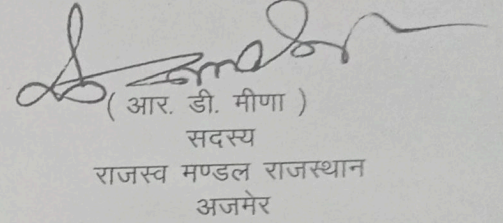 ( आर. डी. मीणा )
सदस्य
राजस्व मण्डल राजस्थान
अजमेर